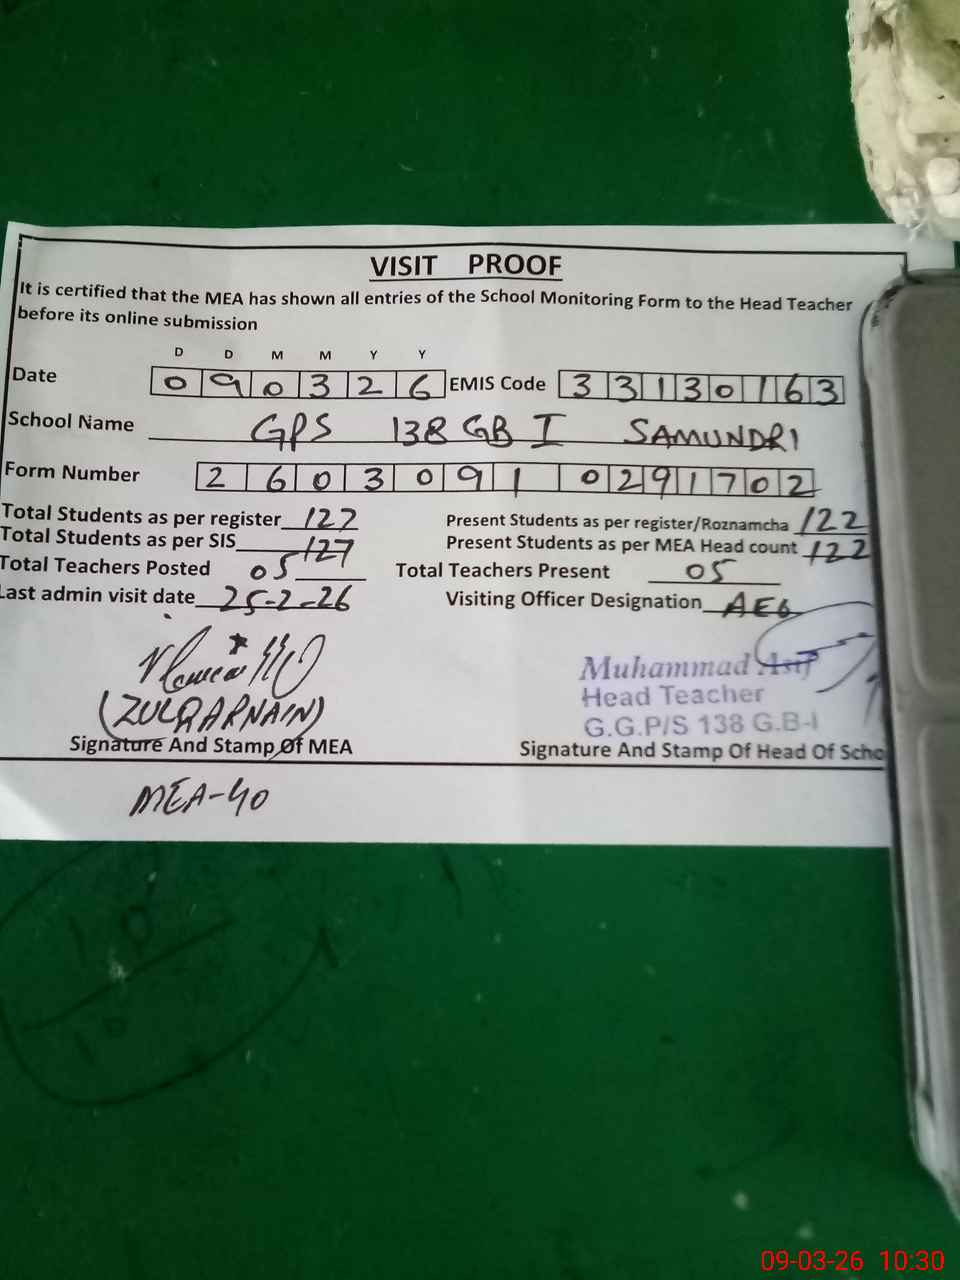 VISIT PROOF
It is certified that the MEA has shown all entries of the School Monitoring Form to the Head Teacher
before its online submission
D D M M Y Y
Date 0 9 0 3 2 6 EMIS Code 3 3 1 3 0 1 6 3
School Name GPS 138 GB I SAMUNDRI
Form Number 2 6 0 3 0 9 1 0 2 9 1 7 0 2
Total Students as per register 127 Present Students as per register/Roznamcha 122
Total Students as per SIS 127 Present Students as per MEA Head count 122
Total Teachers Posted 05 Total Teachers Present 05
Last admin visit date 25-2-26 Visiting Officer Designation AEO
(ZULQARNAIN)
Muhammad Asif
Head Teacher
G.G.P/S 138 G.B-I
Signature And Stamp Of MEA Signature And Stamp Of Head Of Scho
MEA-40
09-03-26 10:30